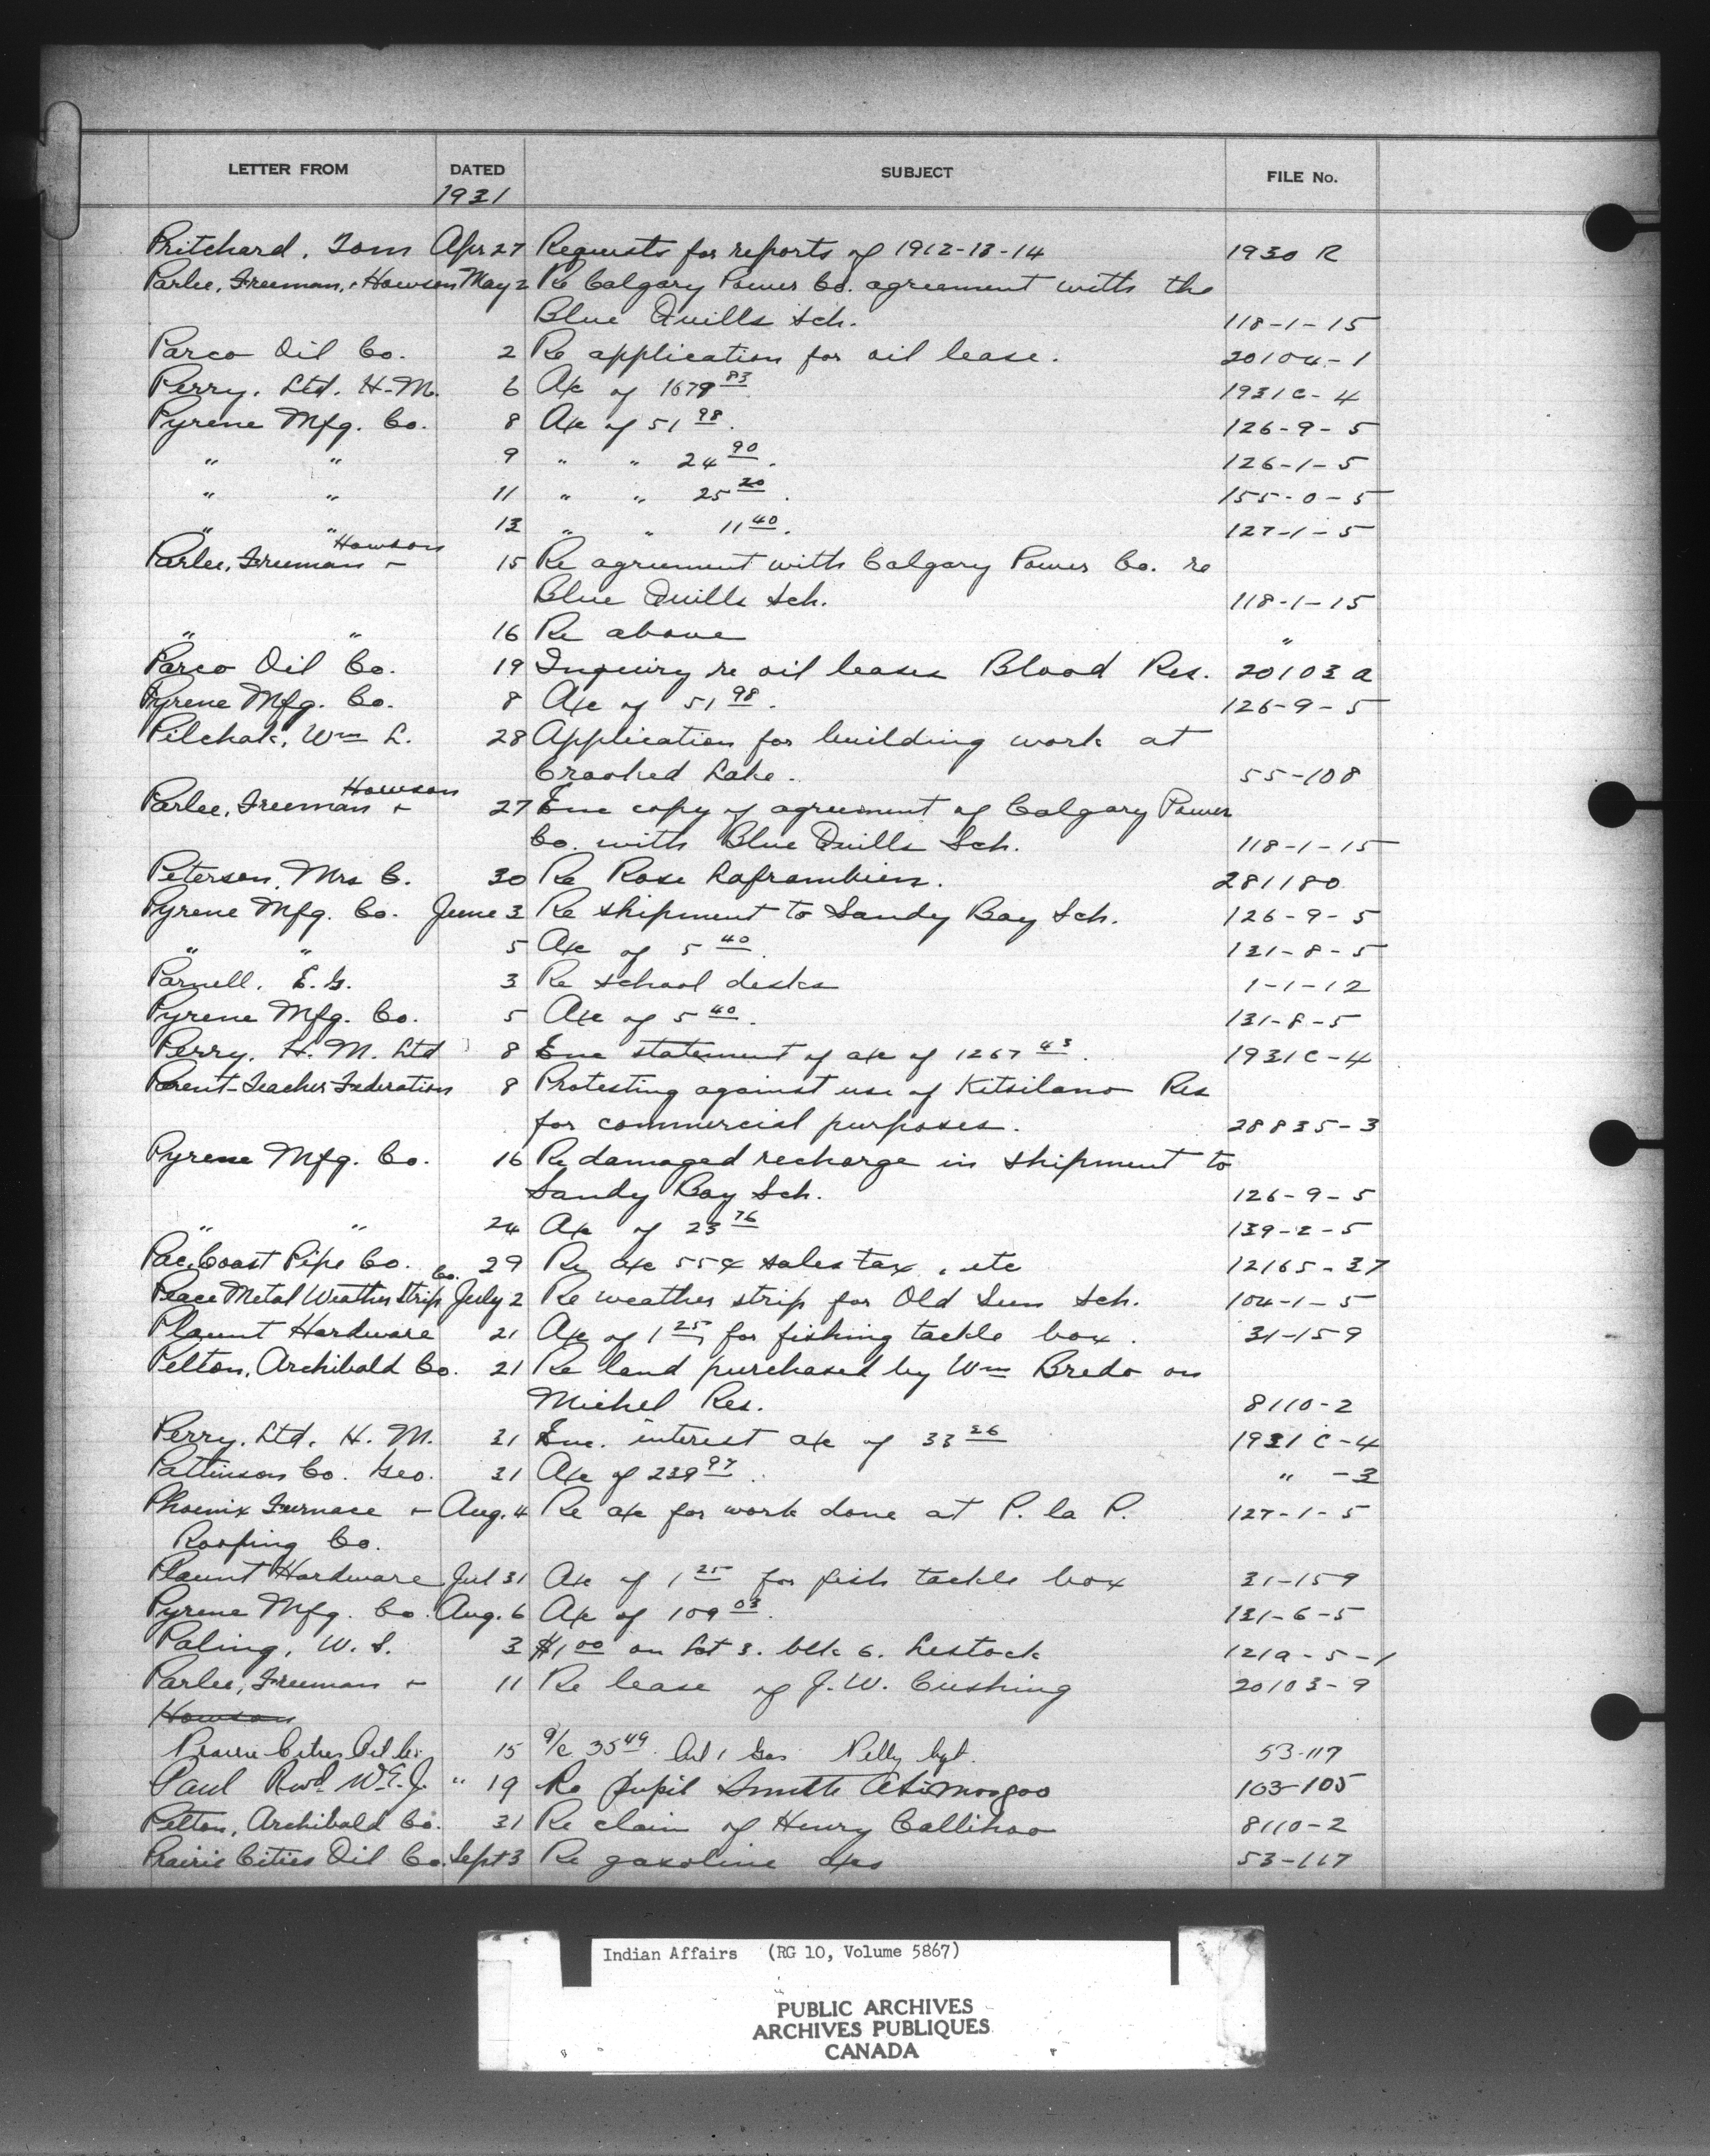 LETTER FROM DATED SUBJECT FILE No.
1931
Pritchard, Tom Apr 27 Requests for reports of 1912-13-14 1930 R
Parlee, Freeman, & Howson May 2 Re Calgary Power Co. agreement with the
Blue Quills Sch. 118-1-15
Parco Oil Co. 2 Re application for oil lease. 20104-1
Perry, Ltd. H.M. 6 A/c of 1679 83 1931C-4
Pyrene Mfg. Co. 8 A/c of 51 98. 126-9-5
" " 9 " " 24 90. 126-1-5
" " 11 " " 25 20. 155-0-5
" " 13 " " 11 40. 127-1-5
Howson
Parlee, Freeman & 15 Re agreement with Calgary Power Co. re
Blue Quills Sch. 118-1-15
" " 16 Re above "
Parco Oil Co. 19 Inquiry re oil leases Blood Res. 20103 a
Pyrene Mfg. Co. 8 A/c of 51 98. 126-9-5
Pilchak, Wm L. 28 Application for building work at
Crooked Lake. 55-108
Howson
Parlee, Freeman & 27 Enc copy of agreement of Calgary Power
Co. with Blue Quills Sch. 118-1-15
Peterson, Mrs C. 30 Re Rose 281180
Pyrene Mfg. Co. June 3 Re shipment to Sandy Bay Sch. 126-9-5
" " 5 A/c of 5 40. 131-8-5
Parnell, E.G. 3 Re school desks 1-1-12
Pyrene Mfg. Co. 5 A/c of 5 40. 131-8-5
Perry, H. M. Ltd 8 Enc statement of a/c of 1267 43. 1931C-4
Parent-Teacher Federation 8 Protesting against use of Kitsilano Res
for commercial purposes. 28835-3
Pyrene Mfg. Co. 16 Re damaged recharge in shipment to
Sandy Bay Sch. 126-9-5
" " 24 A/c of 23 76 139-2-5
Pac. Coast Pipe Co. 29 Re a/c 55¢ sales tax, etc 12165-37
Co.
Peace Metal Weather Strip July 2 Re weather strip for Old Sun Sch. 104-1-5
Plaunt Hardware 21 A/c of 1 25 for fishing tackle box. 31-159
Pelton, Archibald Co. 21 Re land purchased by Wm Bredo on
Michel Res. 8110-2
Perry, Ltd, H. M. 31 Enc. interest a/c of 33 26 1931 C-4
Pattinson Co. Geo. 31 A/c of 239 97. " -3
Phoenix Furnace & Aug. 4 Re a/c for work done at P. la P. 127-1-5
Roofing Co.
Plaunt Hardware Jul 31 A/c of 1 25 for fish tackle box 31-159
Pyrene Mfg. Co. Aug. 6 A/c of 109 03. 131-6-5
Paling, W. S. 3 $1 00 on Lot 3. blk 6. Lestock 121a-5-1
Parlee, Freeman & 11 Re lease of J. W. Cushing 20103-9
Howson
Prairie Cities Oil Co. 15 a/c 35 49. Oil & Gas Pelly Agt. 53-117
Paul Revd. W.E.J. " 19 Re pupil Smith 103-105
Pelton, Archibald Co. 31 Re claim of Henry Callihoo 8110-2
Prairie Cities Oil Co. Sept 3 Re gasoline a/cs 53-117
Indian Affairs (RG 10, Volume 5867)
PUBLIC ARCHIVES
ARCHIVES PUBLIQUES
CANADA